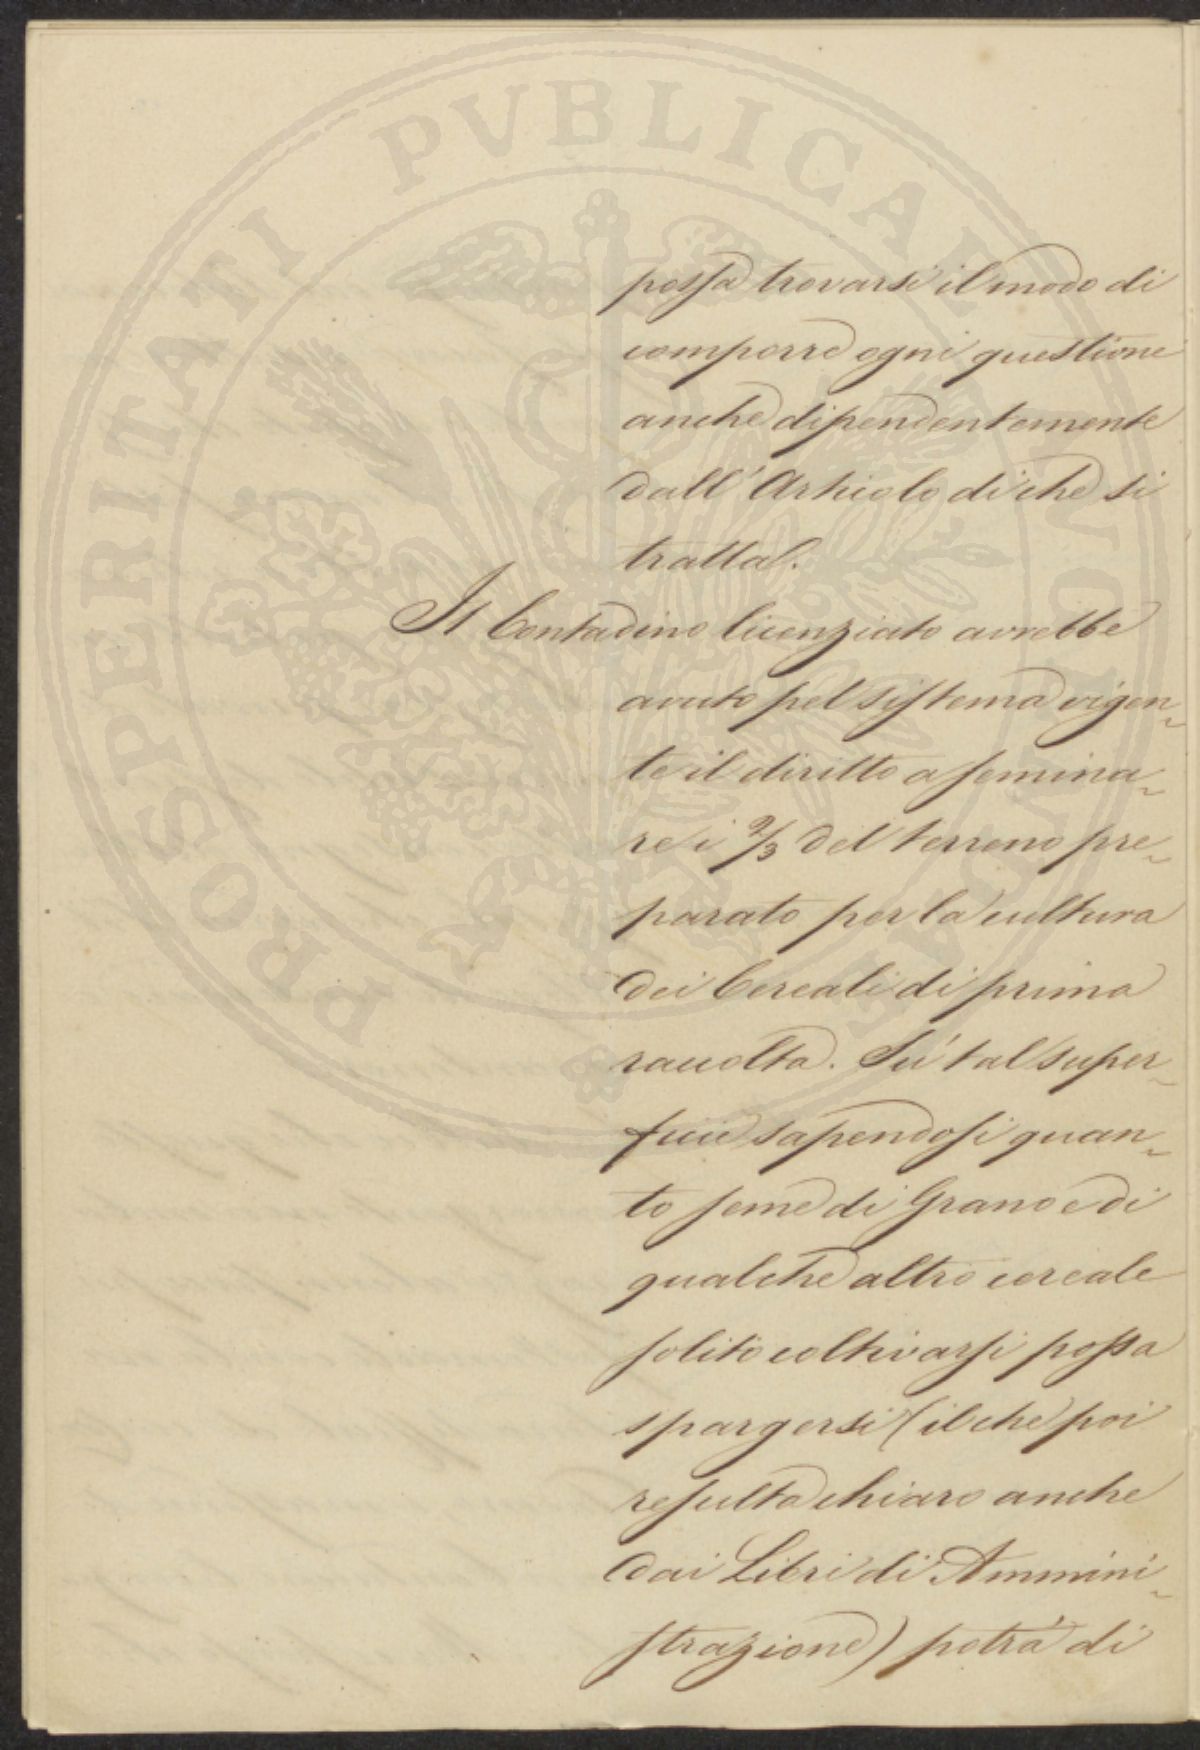 PROSPERITATI PVBLICAE AVGENDAE
possa trovarsi il modo di
comporre ogni questione
anche dipendentemente
dall' Articolo di che si
tratta.
Il Contadino licenziato avrebbe
avuto pel sistema vigen-
te il diritto a semina-
re i 2/3 del terreno pre-
parato per la cultura
dei Cereali di prima
raccolta. Sù tal super-
ficie sapendosi quan-
to seme di Grano e di
qualche altro cereale
solito coltivarsi possa
spargersi (il che poi
resulta chiaro anche
dai Libri di Ammini-
strazione) potrà di